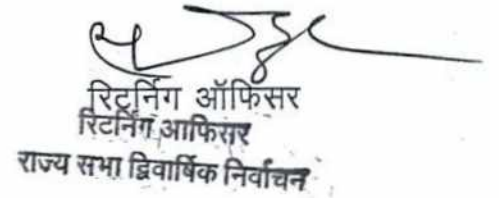 रिटर्निंग ऑफिसर
रिटर्निंग आफिसर
राज्य सभा द्विवार्षिक निर्वाचन